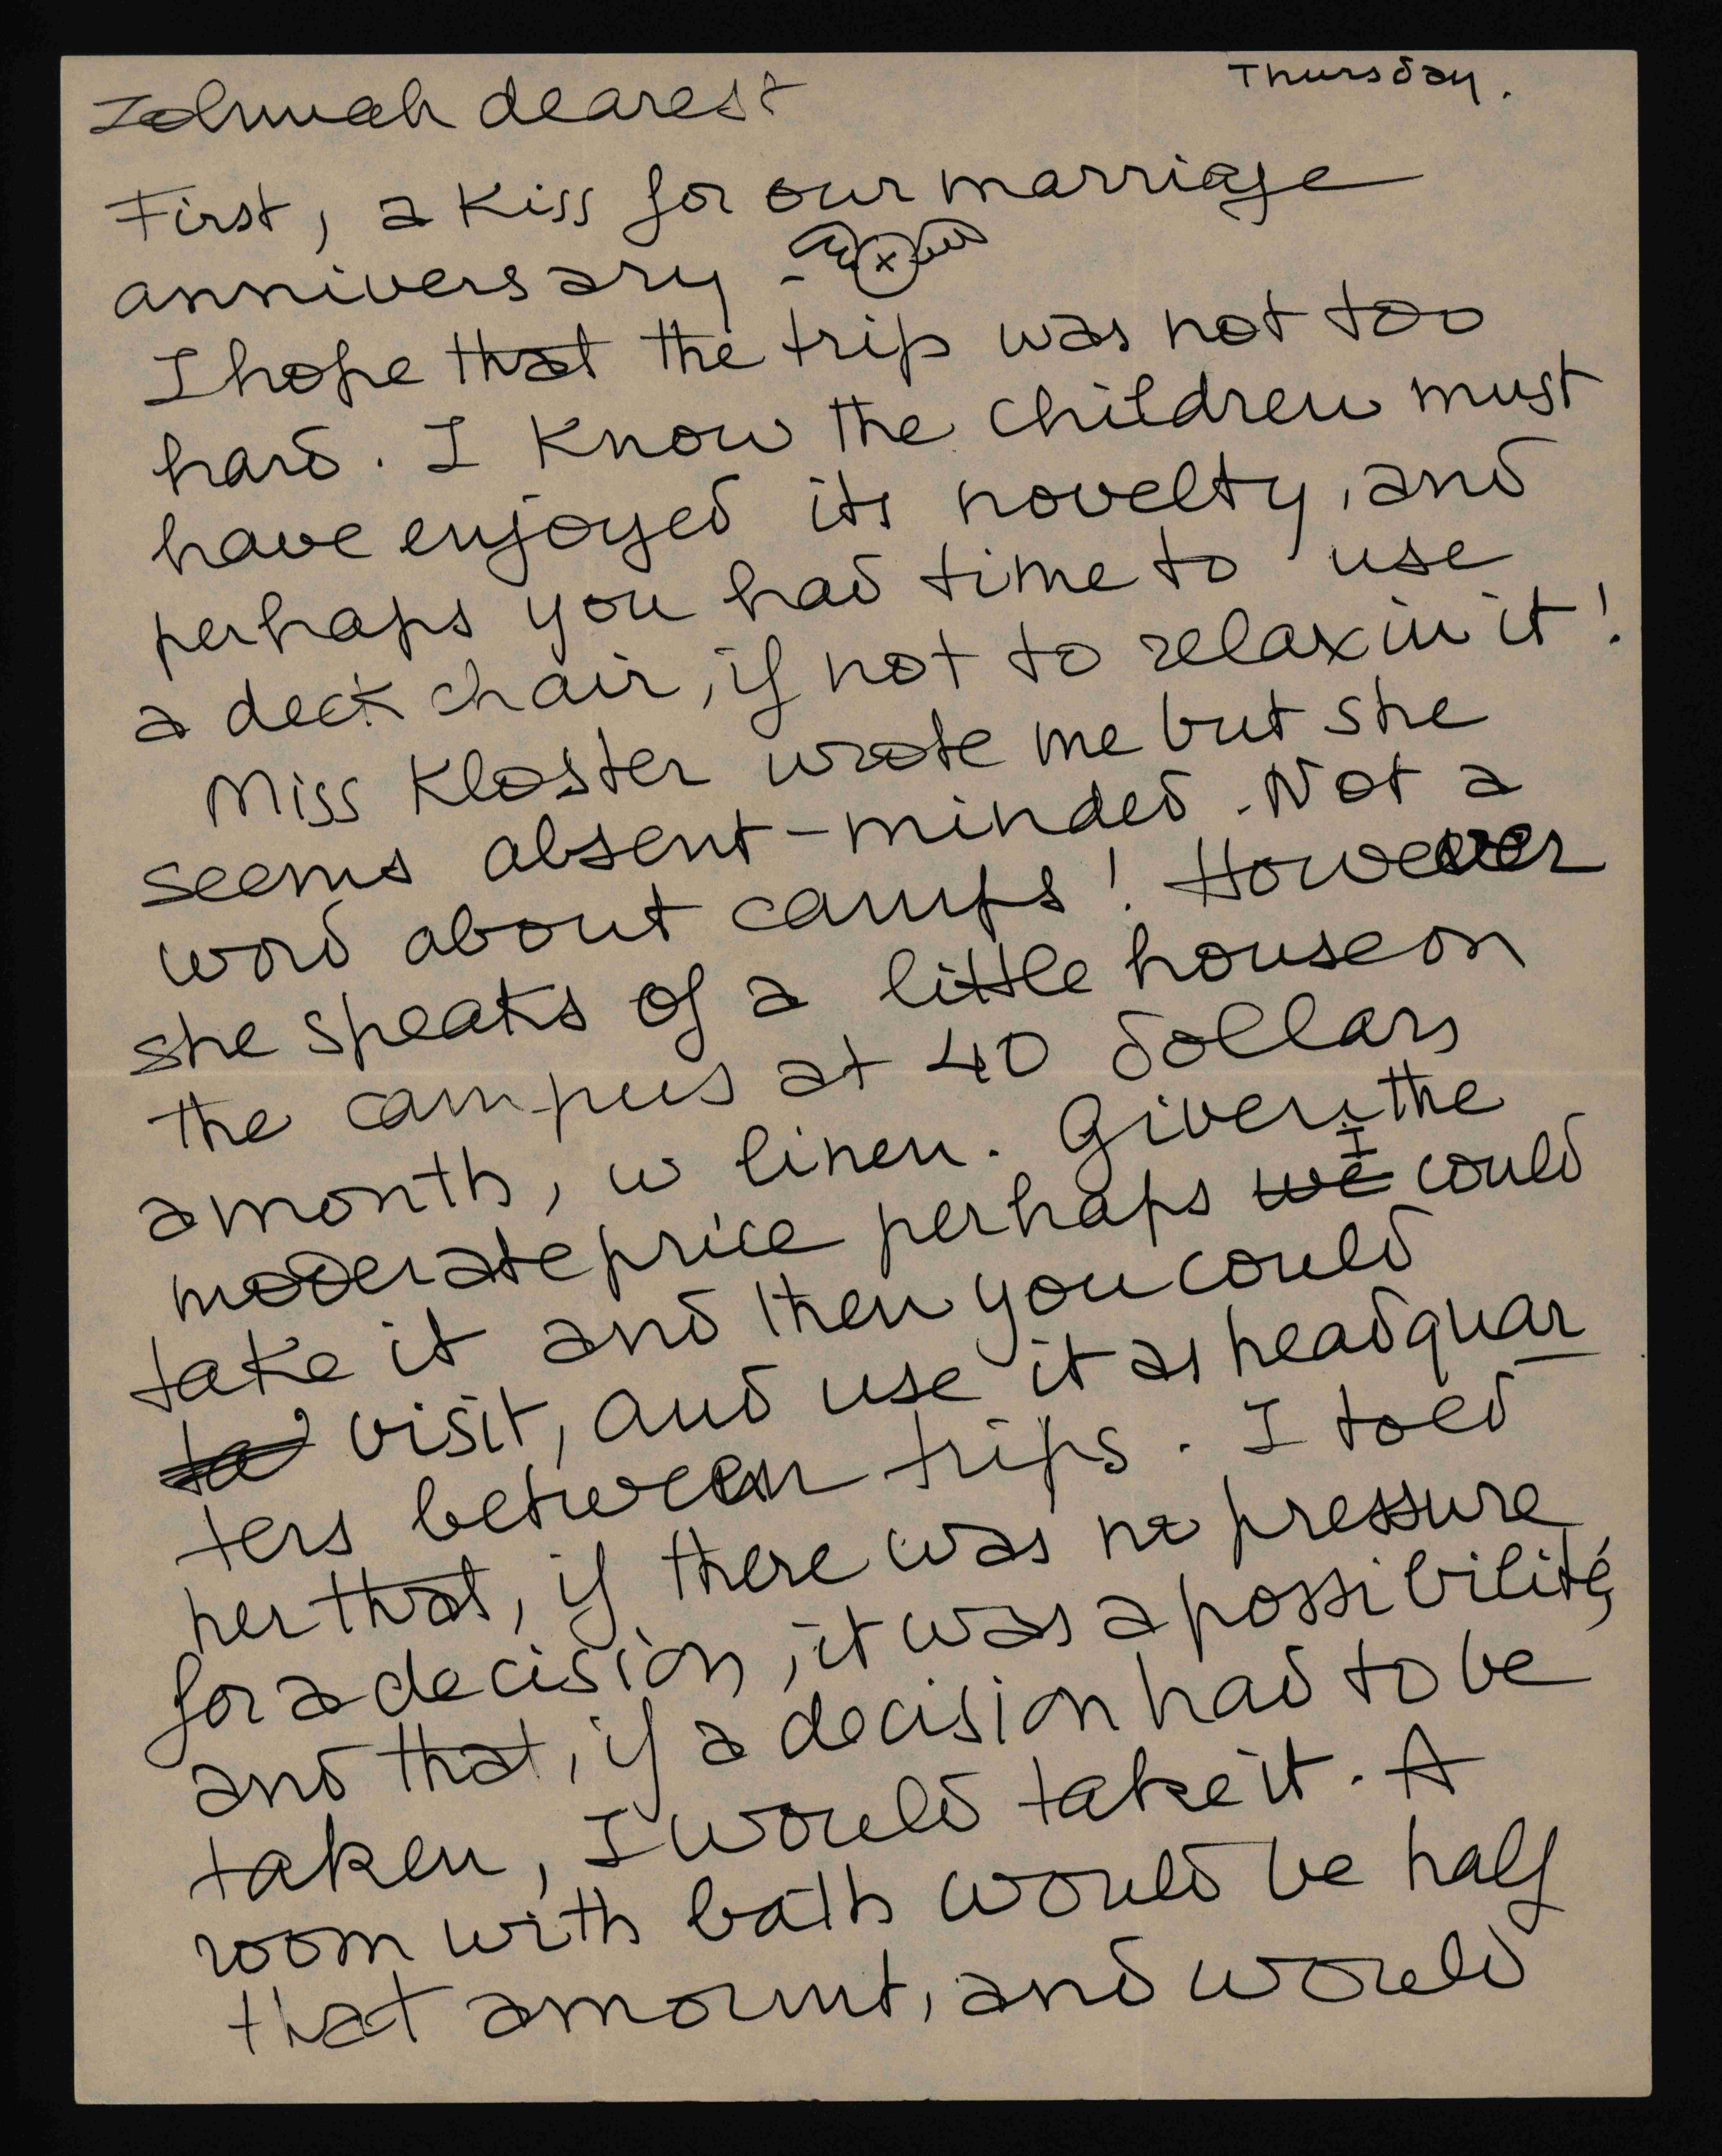 Thursday.
Zohmah dearest
First, a kiss for our marriage
anniversary -
x
I hope that the trip was not too
hard. I know the children must
have enjoyed its novelty, and
perhaps you had time to use
a deck chair, if not to relax in it!
Miss Kloster wrote me but she
seems absent-minded. Not a
word about camps! However
she speaks of a little house on
the campus at 40 dollars
a month, w linen. Given the
moderate price perhaps we I could
take it and then you could
to visit, and use it as headquar
ters between trips. I told
her that, if there was no pressure
for a decision, it was a possibilité,
and that, if a decision had to be
taken, I would take it. A
room with bath would be half
that amount, and would